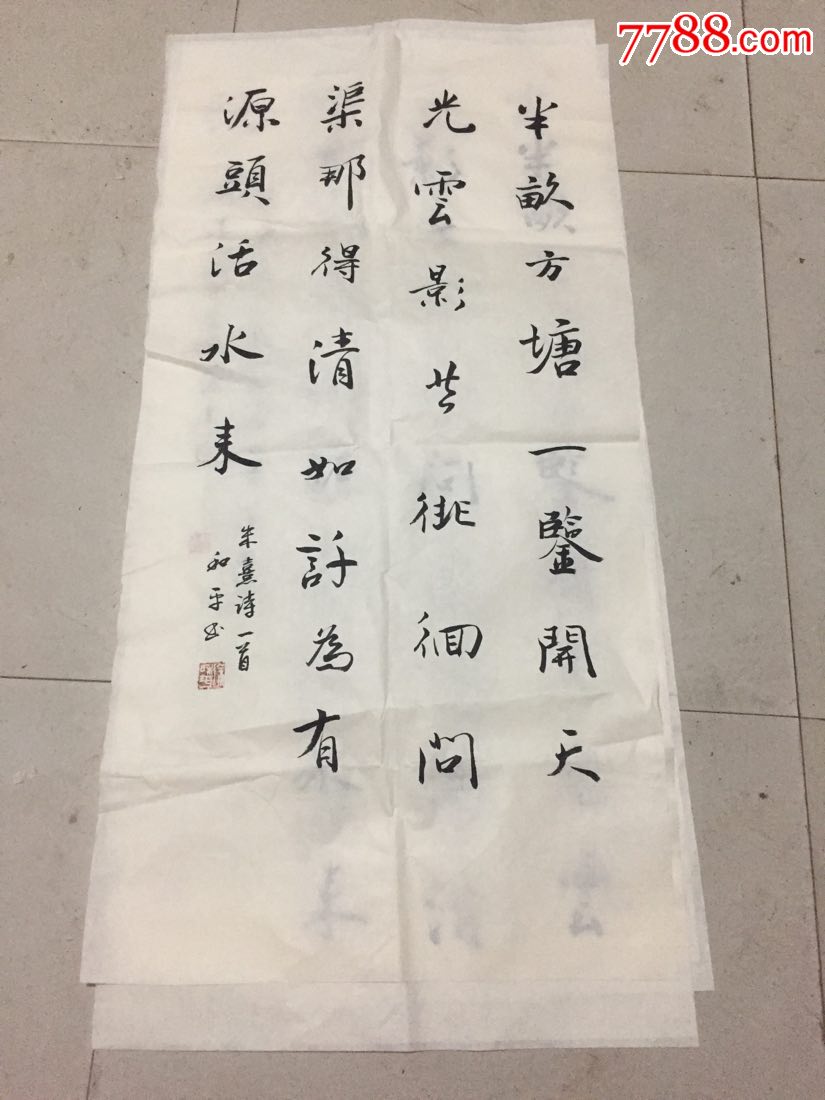 7788.com
半畝方塘一鑒開天
光雲影共徘徊問
渠那得清如許為有
源頭活水来
朱熹诗一首
和平书